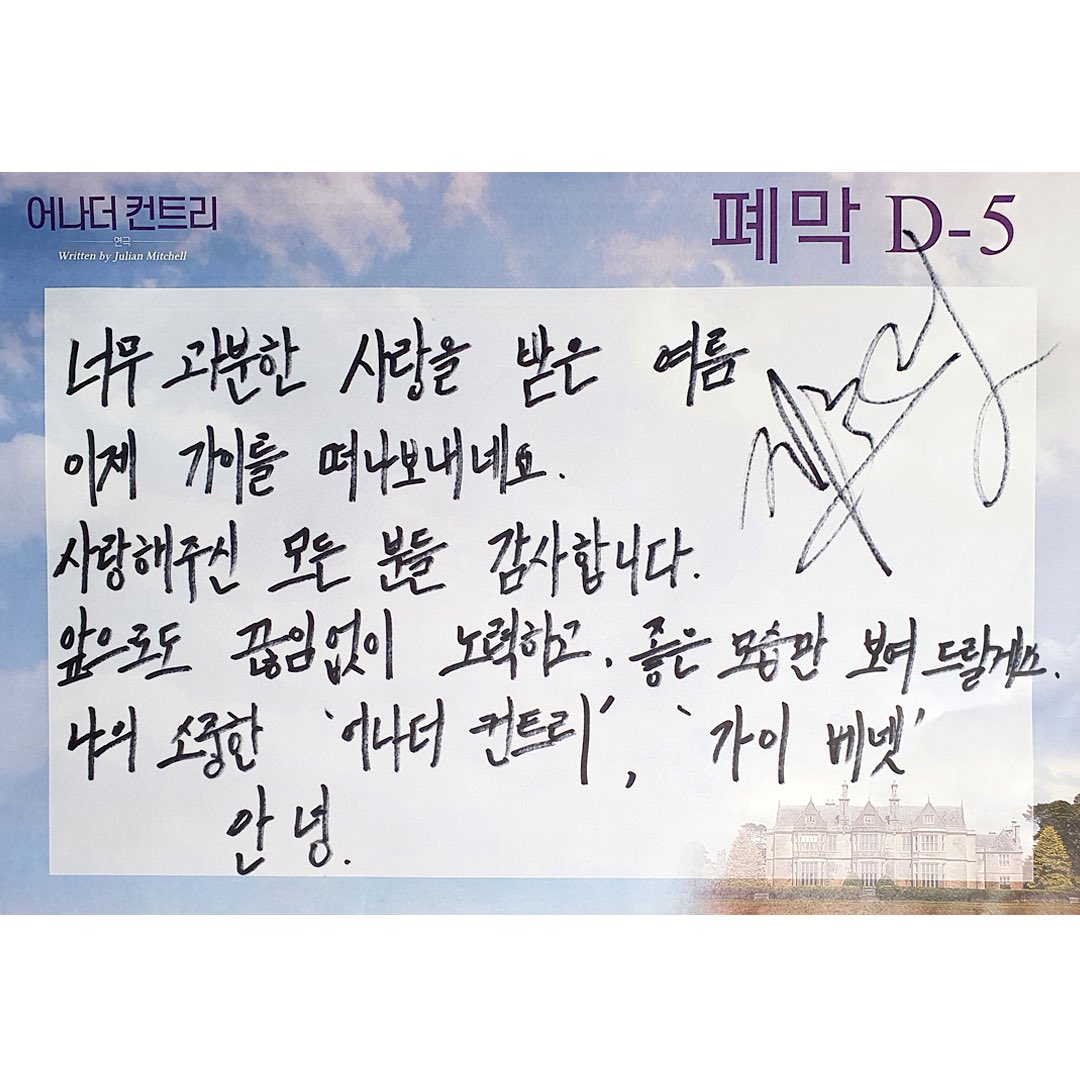 어나더 컨트리
연극
Written by Julian Mitchell
폐막 D-5
너무 과분한 사랑을 받은 여름
이제 가이를 떠나보내네요.
사랑해주신 모든 분들 감사합니다.
앞으로도 끊임없이 노력하고, 좋은 모습만 보여 드릴게요.
나의 소중한 '어나더 컨트리', '가이 베넷'
안녕.